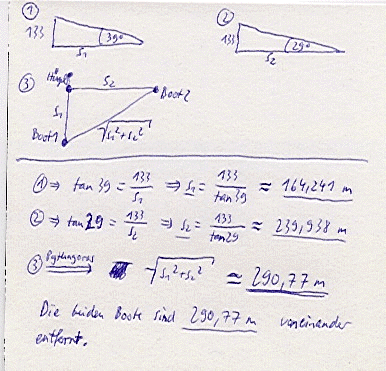 ①
133
39°
s₁
②
133
29°
s₂
③
Hügel
s₂
Boot 2
s₁
√s₁²+s₂²
Boot 1
① ⇒ tan 39 = 133/s₁ ⇒ s₁ = 133/tan 39 ≈ 164,241 m
② ⇒ tan 29 = 133/s₂ ⇒ s₂ = 133/tan 29 ≈ 239,938 m
③ Pythagoras ⇒ √s₁²+s₂² ≈ 290,77 m
Die beiden Boote sind 290,77 m voneinander
entfernt.